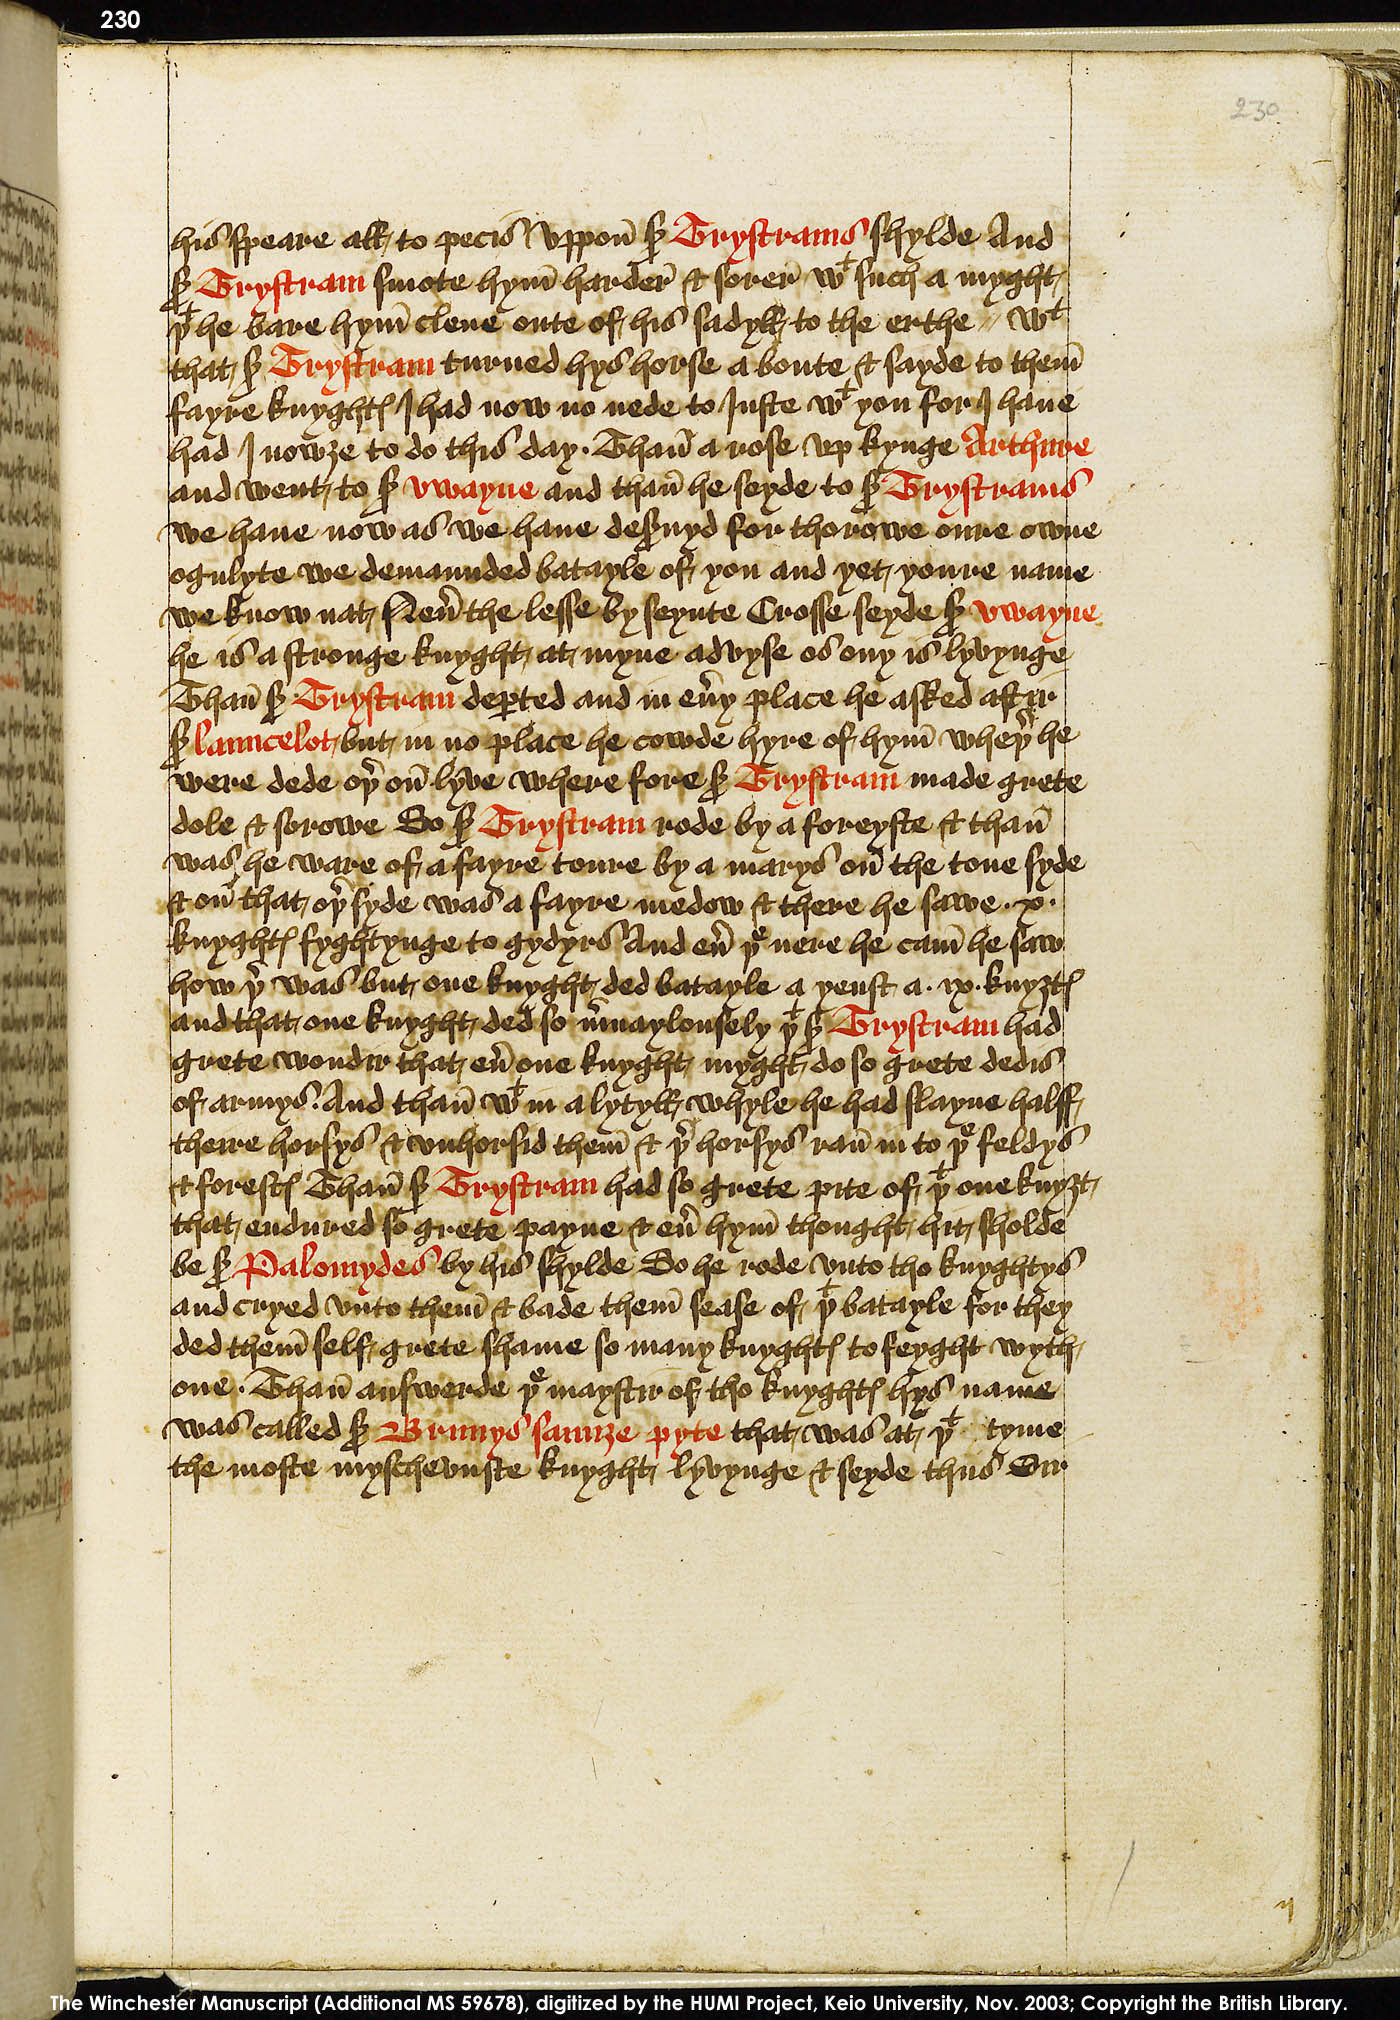 230
230
his speare all to pecis vppon̄ sʳ Trystrams shylde And
sʳ Trystram smote hym̄ harder̄ & sorer̄ wᵗ such a myght
þᵗ he bare hym̄ clene oute of his sadyll to the erthe // Wᵗ
that sʳ Trystram turned hys horse a boute & sayde to them̄
fayre knyghtes I had now no nede to Iuste wᵗ you for I haue
had I nowȝe to do this day. Than̄ a rose vp kynge Arthure
and went to sʳ vwayne and than̄ he seyde to sʳ Trystrams
we haue now as we haue des̄uyd for thorowe oure owne
ogulyte we demaunded batayle of you and yet youre name
we know nat Neū the lesse by seynte Crosse seyde sʳ vwayne
he is a stronge knyght at myne advyse os ony is lyvynge
Than̄ sʳ Trystram dep̄ted and in eūy place he asked aftir
sʳ launcelot but in no place he cowde hyre of hym̄ wheþʳ he
were dede oþʳ on̄ lyve where fore sʳ Trystram made grete
dole & sorowe So sʳ Trystram rode by a foreyste & than̄
was he ware of a fayre toure by a marys on̄ the tone syde
& on̄ that oþʳ syde was a fayre medow & there he sawe .x.
knyghtes fyghtynge to gydyrs And eū þᵉ nere he cam̄ he saw
how þʳ was but one knyght ded batayle a yenst a .ix. knyȝtes
and that one knyght ded so m̄uaylously þᵗ sʳ Trystram had
grete wondir that eū one knyght myght do so grete dedis
of armys. And than̄ wᵗ in a lytyll whyle he had slayne halff
theire horsys & vnhorsid them̄ & þʳ horsys ran̄ in to þᵉ feldys
& forestes Than̄ sʳ Trystram had so grete pite of þᵗ one knyȝt
that endured so grete payne & eū hym̄ thought hit sholde
be sʳ Palomydes by his shylde So he rode vnto tho knyghtys
and cryed vnto them̄ & bade them̄ sease of þᵗ batayle for they
ded them̄ self grete shame so many knyghtes to feyght wyth
one. Than̄ answerde þᵉ maystir of tho knyghtes hys name
was called sʳ Brunys saunze pyte that was at þᵗ tyme
the moste myschevuste knyght lyvynge & seyde thus Sir
The Winchester Manuscript (Additional MS 59678), digitized by the HUMI Project, Keio University, Nov. 2003; Copyright the British Library.